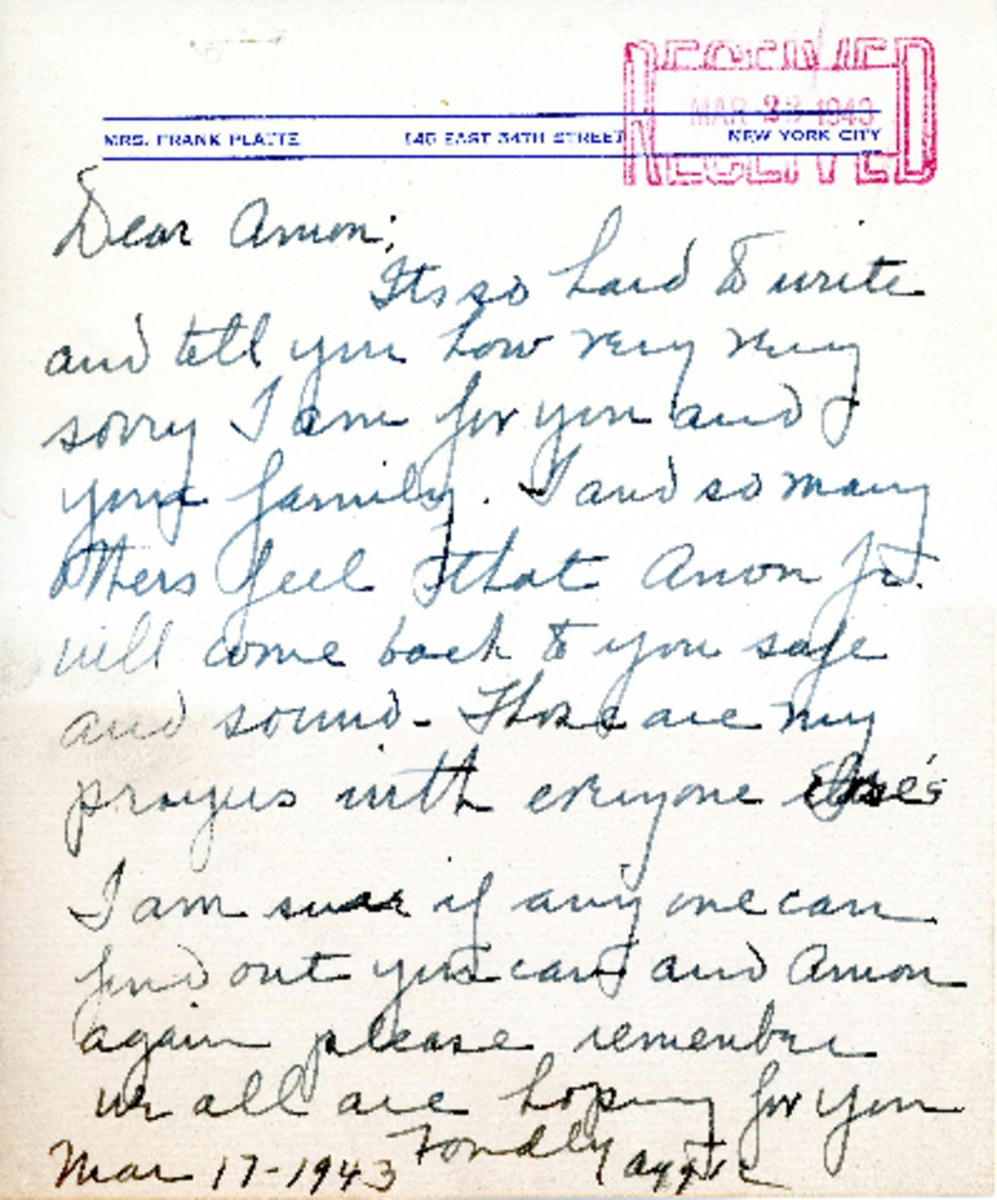 RECEIVED
MAR 1943
RECEIVED
MRS. FRANK PLATTE 140 EAST 34TH STREET NEW YORK CITY
Dear Amon;
Its so hard to write
and tell you how very very
sorry I am for you and
your family. I and so many
others feel that Amon Jr.
will come back to you safe
and sound - Those are my
prayers with everyone else's
I am sure if any one can
find out you can and Amon
again please remember
we all are hoping for you
Fondly
Mar 17-1943